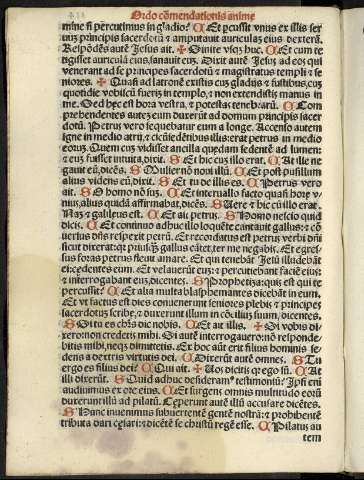 Ordo cōmendationis anime
mine si percutimus in gladio? Et percussit vnus ex illis ser
uuȝ principis sacerdotū ⁊ amputauit auriculaȝ eius dexterā.
Respōdēs autē Jesus ait. ✠ Sinite vsqȝ huc. Et cum te
tigisset auriculā eius, sanauit eum. Dixit autē Jesus ad eos qui
venerant ad se principes sacerdotū ⁊ magistratus templi ⁊ se
niores. ✠ Quasi ad latronē existis cuȝ gladijs ⁊ fustibus, cuȝ
quotidie vobiscū fuerim in templo, non extendistis manus in
me. Sed hec est hora vestra, ⁊ potestas tenebrarū. Com
prehendentes autez eum duxerūt ad domum principis sacer
dotū. Petrus vero sequebatur eum a longe. Accenso autem
igne in medio atrij ⁊ circūsedētibus illis: erat petrus in medio
eorum. Quem cum vidisset ancilla quedam sedentē ad lumen: 
⁊ eum fuisset intuita, dixit. S Et hic cum illo erat. At ille ne
gauit eū, dicēs. S Mulier nō noui illū. Et post pusillum
alius videns eū dixit. S Et tu de illis es. Petrus vero
ait. S O homo nō sum. Et interuallo facto quasi hore v
nius, alius quidā affirmabat, dicēs. S Uere ⁊ hic cū illo erat.
Nam ⁊ galileus est. Et ait petrus. S Homo nescio quid
dicis. Et continuo adhuc illo loquēte cantauit gallus: ⁊ cō
uersus dn̄s respexit petrū. Et recordatus est petrus verbi dn̄i
sicut dixerat: qꝛ priusqȝ gallus cātet, ter me negabis. Et egres
sus foras petrus fleuit amare. Et qui tenebāt Jesū illudebāt
ei cedentes eum. Et velauerūt eum: ⁊ percutiebant faciē eius:
⁊ interrogabant eum, dicentes. S Prophetiza: quis est qui te
percussit? Et alia multa blasphemantes dicebāt in eum.
Et vt factus est dies conuenerunt seniores plebis ⁊ principes
sacerdotum ⁊ scribe, ⁊ duxerunt illum in cōciliū suum, dicentes.
S Si tu es chr̄s dic nobis. Et ait illis. ✠ Si vobis di
xero non credetis mihi. Si autē interrogauero: nō responde
bitis mihi, neqȝ dimittetis. Ex hoc aūt erit filius hominis se
dens a dextris virtutis dei. Dixerūt autē omnes. S Tu
ergo es filius dei? Qui ait. ✠ Uos dicitis qꝛ ego sū. At
illi dixerūt. S Quid adhuc desideramꝰ testimoniū? Ipsi eni
audiuimus ex ore eius. Et surgens omnis multitudo eorū
duxerunt illū ad pilatū. Ceperunt autē illū accusare dicētes.
S Hunc inuenimus subuertentē gentē nostrā: ⁊ prohibentē
tributa dari cesari: ⁊ dicētē se christū regē esse. Pilatus au
tem